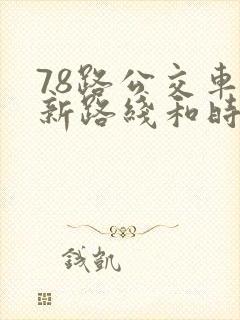 78路公交車
新路綫和時
钱凱